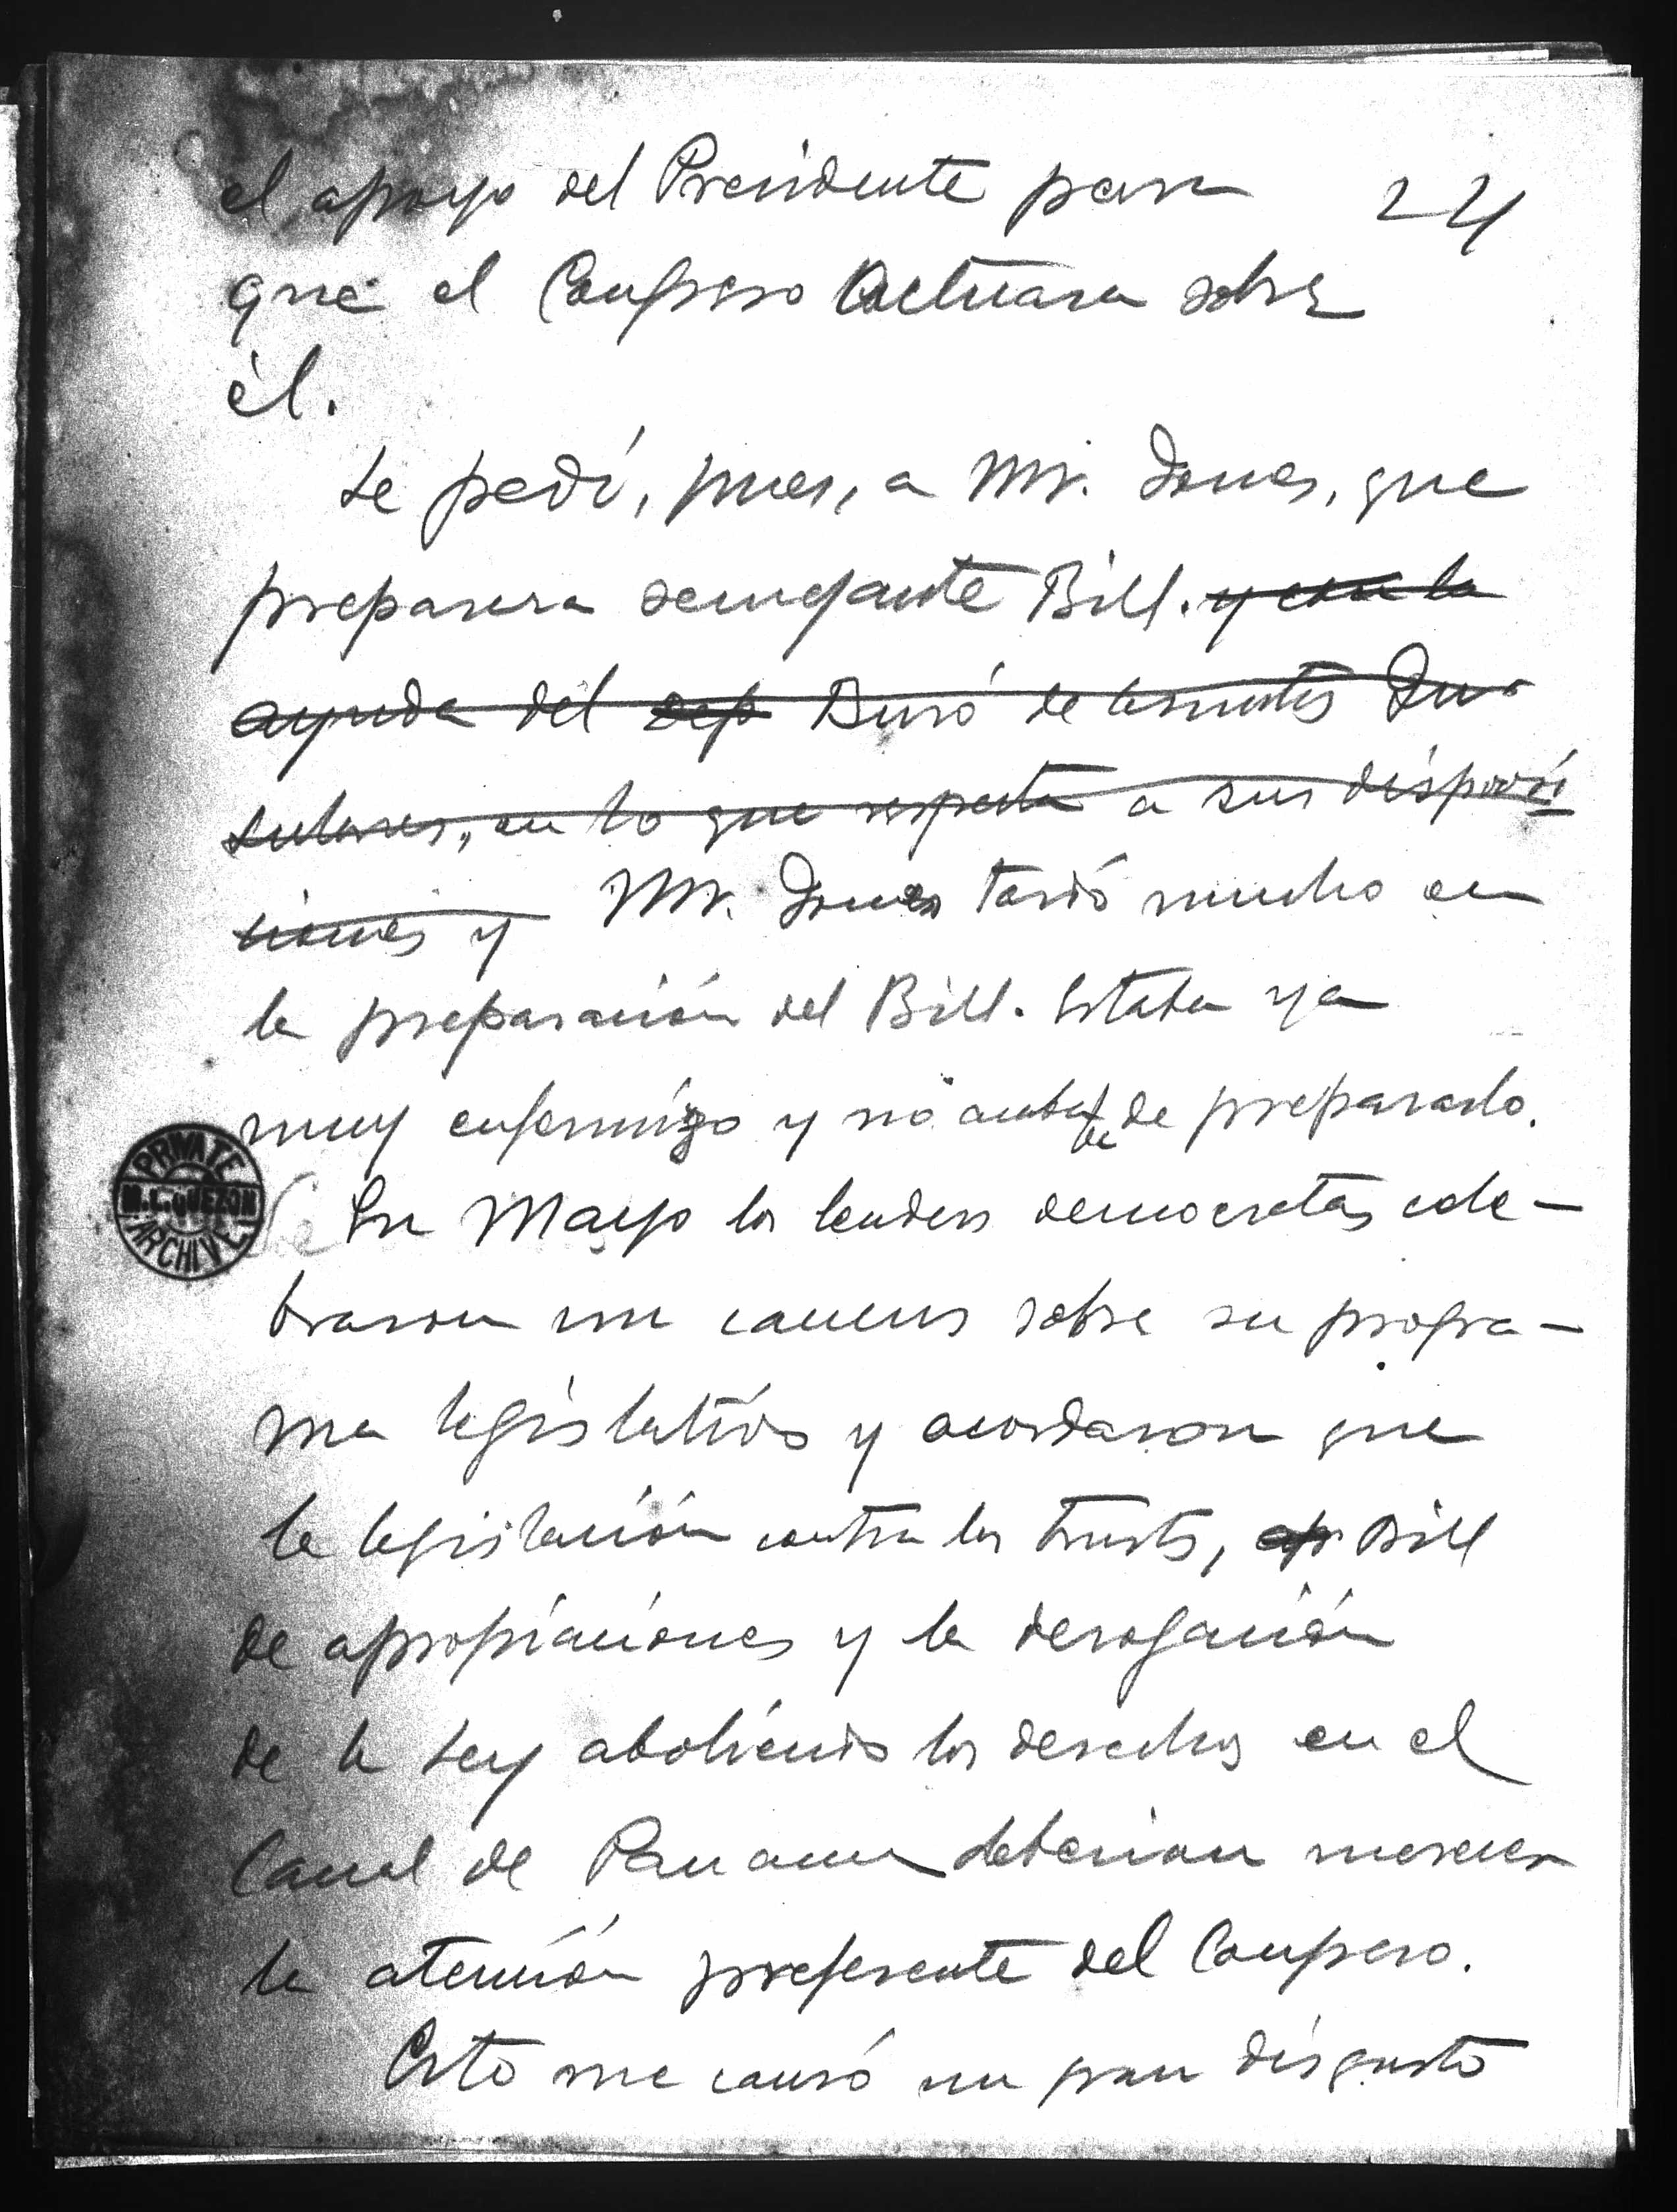 el apoyo del Presidente para 24
que el Congreso actuara sobre
él.
Le pedí, pues, a Mr. Jones, que
preparara semejante Bill. y con la
ayuda del dep Buró de Asuntos In-
sulares, en lo que respecta a sus disposi
ciones y Mr. Jones tardó mucho en
la preparación del Bill. Estaba ya
muy enfermizo y no acababa de prepararlo.
En Mayo los leaders democratas cele-
braron un caucus sobre su progra-
ma legislativo y acordaron que
la legislación contra los trusts, ap Bill
de apropiaciones y la derogación
de la Ley aboliendo los derechos en el
Canal de Panama deberian merecer
la atención preferente del Congreso.
Esto me causó un gran disgusto
PRIVATE
M.L.QUEZON
ARCHIVE